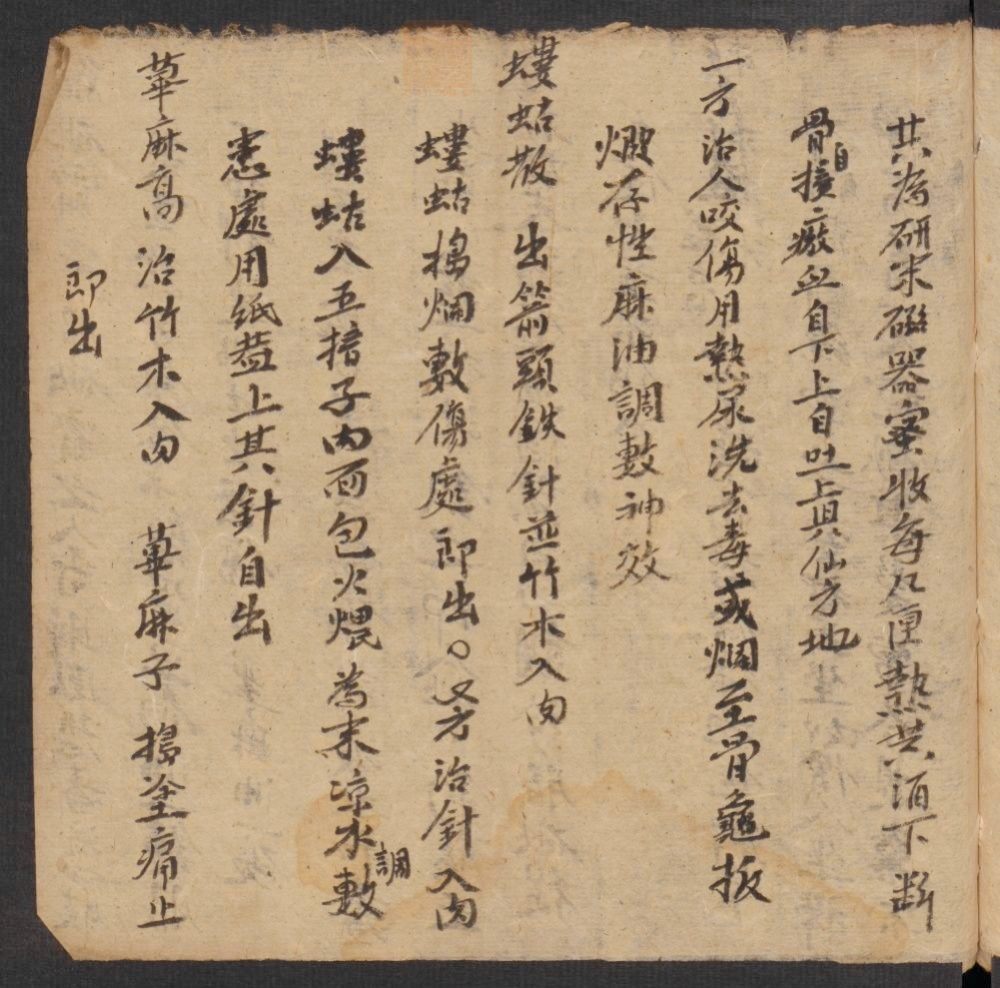 共為研末磁器蜜收每八厘熱共酒下断
骨自接瘀血自下上自吐上具仙方地
一方治人咬傷用熱尿洗去毒或爛至骨龜板
煅存性麻油調敷神效
螻蛄散 出箭頭鉄針並竹木入肉
螻蛄搗爛敷傷處 即出○又方治針入肉
螻蛄入五掊子内面包火煨為末凉水調敷
患處用紙盖上其針自出
萆麻膏 治竹木入肉 萆麻子 搗塗痛止
即出